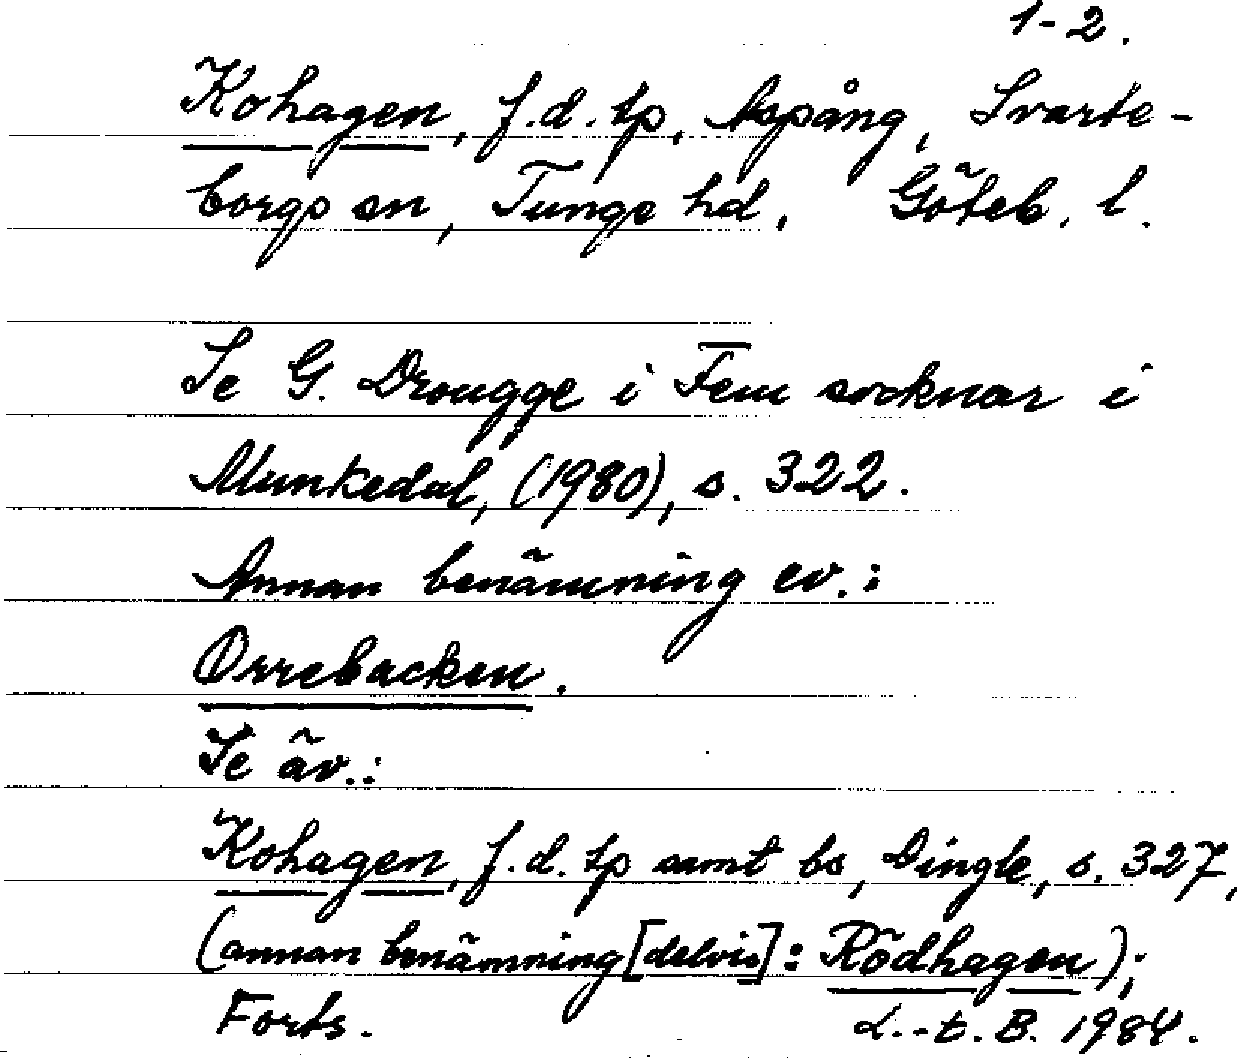 1-2.
Kohagen, f.d. tp, Aspång, Svarte-
borgs sn, Tunge hd, Göteb. l.
Se G. Drougge i Fem socknar i
Munkedal, (1980), s. 322.
Annan benämning ev.:
Orrebacken.
Se äv.:
Kohagen, f.d. tp samt bs, Dingle, s. 327,
(annan benämning [delvis]: Rödhagen);
Forts. L.-t. B. 1984.